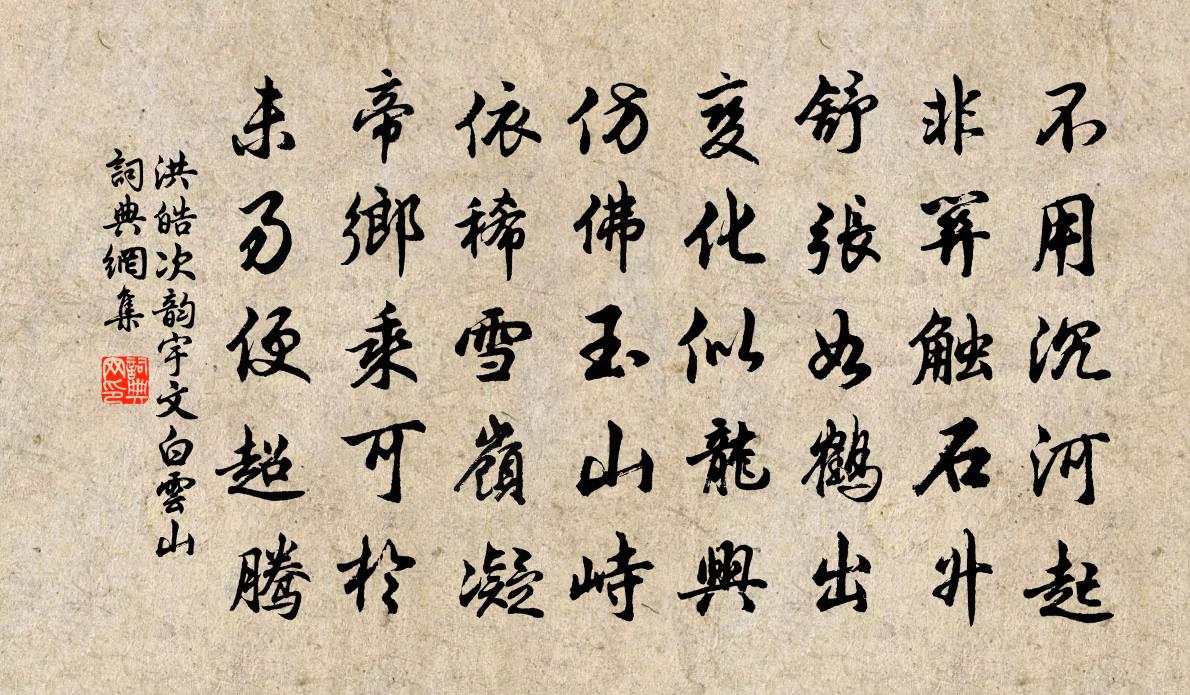 不用沉河起
非關触石升
舒張如鶴出
变化似龍興
仿佛玉山峙
依稀雪嶺凝
帝鄉乘可於
未易便超騰
洪皓次韵宇文白雲山
詞典網集
詞典